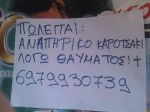 ΠΩΛΕΙΤΑΙ:
ΑΝΑΠΗΡΙΚΟ ΚΑΡΟΤΣΑΚΙ
ΛΟΓΩ ΘΑΥΜΑΤΟΣ! +
6979930739